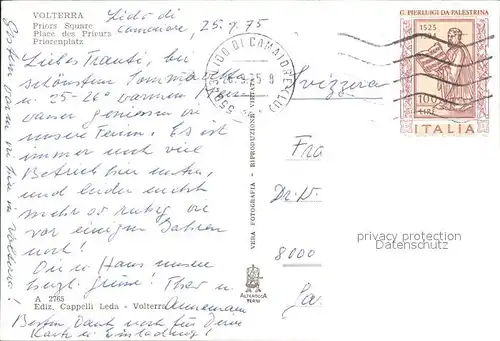 VOLTERRA
Priors Square
Place des Prieurs
Priorenplatz
Lido di
Camaiore, 25.9.75
Liebes Traudi, bei
schönstem Sommerwetter
u. 25-26° warmem
wasser geniessen wir
unsere Ferien. Es ist
immer noch viel
Betrieb hier unten,
und leider nicht
mehr so ruhig wie
vor einigen Jahren
noch!
Dir u. Hans unsere
herzl. Grüsse! Ther u.
Annemarie
Besten Dank noch für Deine
Karte u. Einladung!
Gestern waren wir hier in Volterra!
A 2765
Ediz. Cappelli Leda - Volterra
VERA FOTOGRAFIA - RIPRODUZIONE VIETATA
ALTEROCCA
TERNI
LIDO DI CAMAIORE (LU)
Svizzera
Fra
Dr. N.
8000
G. PIERLUIGI DA PALESTRINA
1525
100
LIRE
ITALIA
privacy protection
Datenschutz